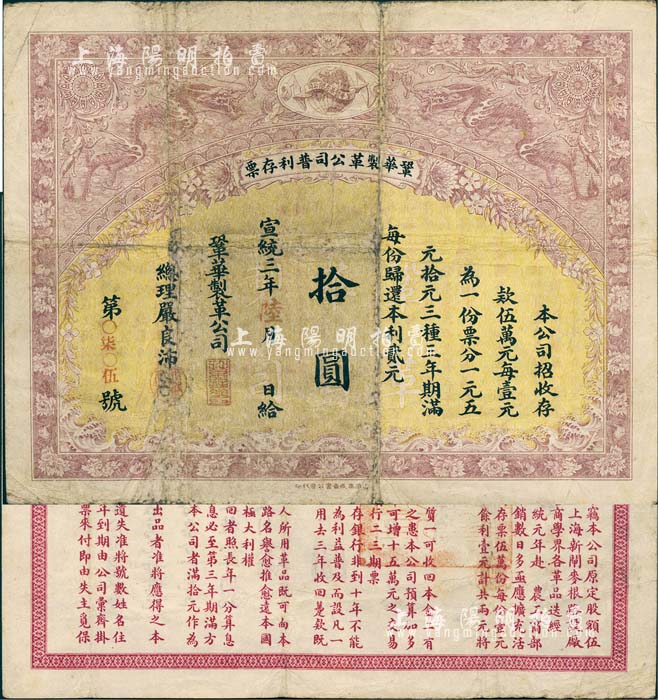 上海陽明拍賣
www.yangmingauction.com
鞏華製革公司普利存票
本公司招收存
款伍萬元每壹元
為一份票分一元五
元拾元三種三年期滿
每份歸還本利貳元
拾圓
宣統三年陸月 日給
鞏華製革公司
總理嚴良沛
第〇柒〇伍號
上海陽明拍賣
www.yangmingauction.com
竊本公司原定股額伍
上海新閘麥根路
商學界各革品迭經
統元年赴 農
銷數日多亟應擴充活
存票伍萬份每份
餘利壹元計共兩元將
質一可收回本金一有
之患本公司預算如多
可增十五萬元之交易
行二三期票
存銀行非到十年不能
為利益普及而設凡一
用去三年收回憑款既
人所用革品既可向本
路名譽愈推愈遠本國
極大利權
回者照長年一分算息
息必至第三年期滿方
本公司者滿拾元作為
出品者准將應得之本
遺失准將號數姓名住
年到期由公司彙齊掛
票來付即由失主覓保